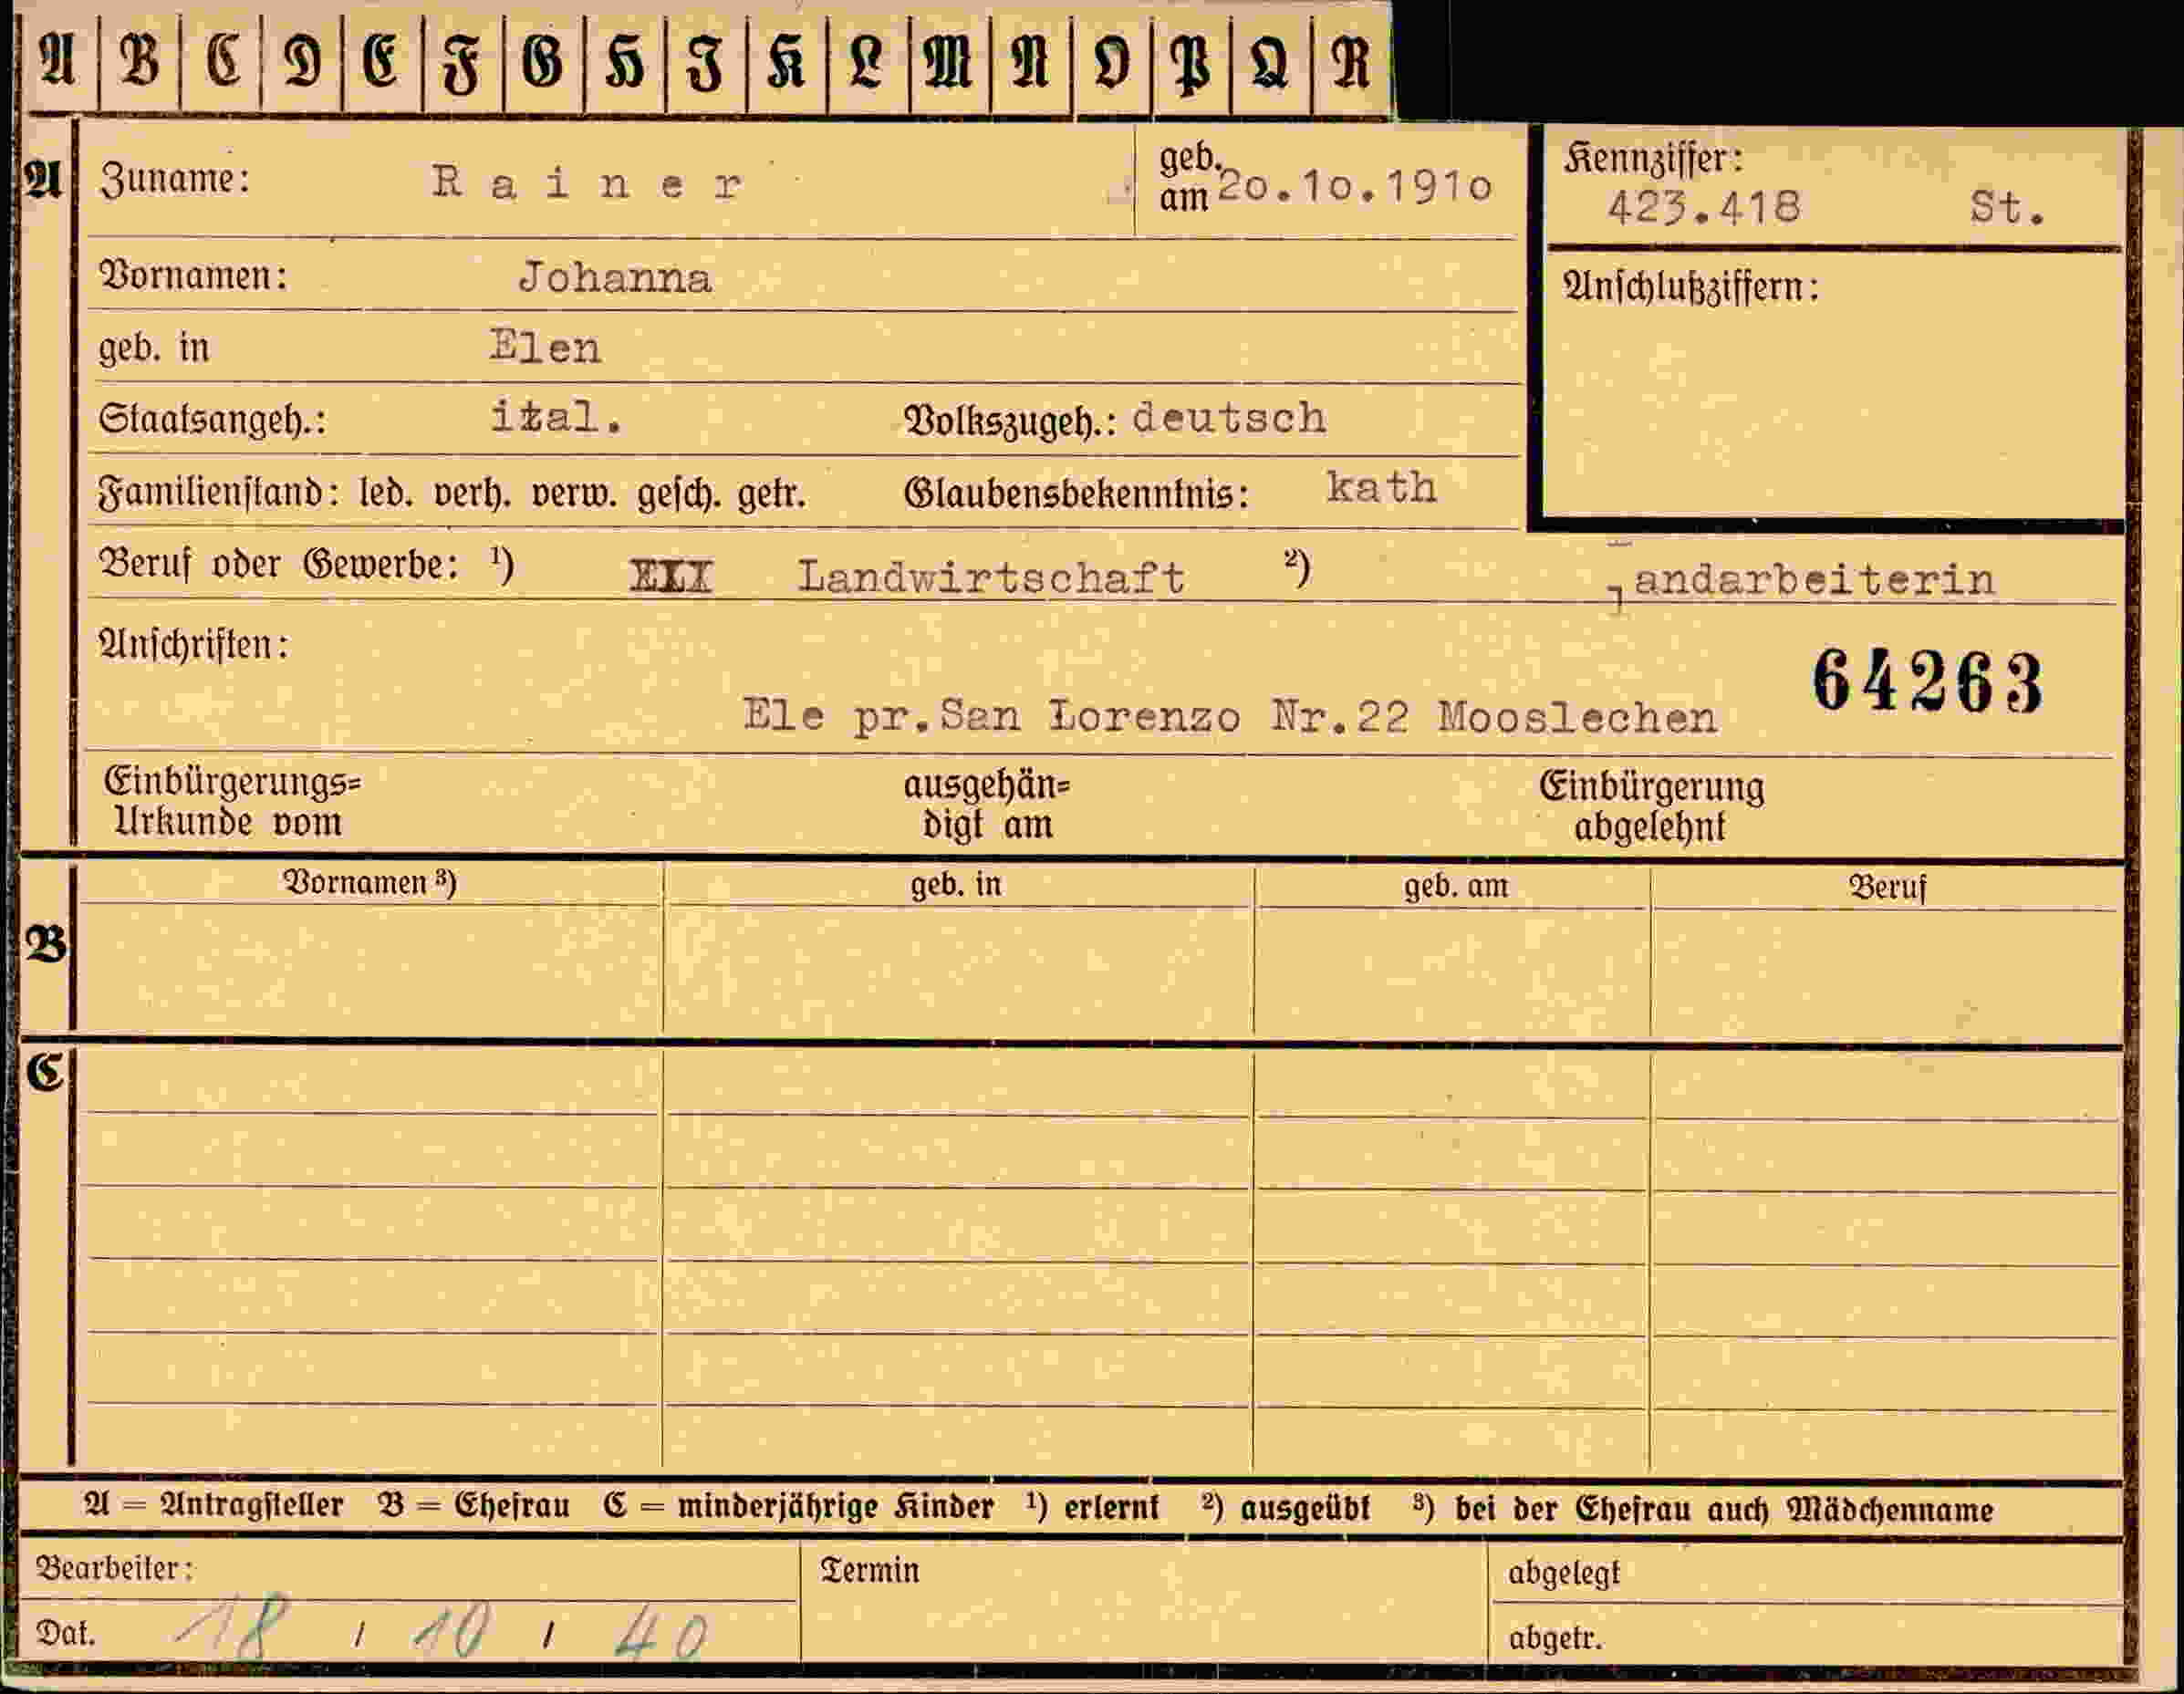 A B C D E F G H I K L M N O P Q R
A Zuname: Rainer geb. am 20.10.1910 Kennziffer:
423.418 St.
Vornamen: Johanna Anschlußziffern:
geb. in Elen
Staatsangeh.: ital. Volkszugeh.: deutsch
Familienstand: led. verh. verw. gesch. getr. Glaubensbekenntnis: kath
Beruf oder Gewerbe: ¹) Landwirtschaft ²) Landarbeiterin
Anschriften:
64263
Ele pr.San Lorenzo Nr.22 Mooslechen
Einbürgerungs=
Urkunde vom
ausgehän=
digt am
Einbürgerung
abgelehnt
Vornamen ³) geb. in geb. am Beruf
B
C
A = Antragsteller B = Ehefrau C = minderjährige Kinder ¹) erlernt ²) ausgeübt ³) bei der Ehefrau auch Mädchenname
Bearbeiter: Termin abgelegt
Dat. 18 / 10 / 40 abgetr.